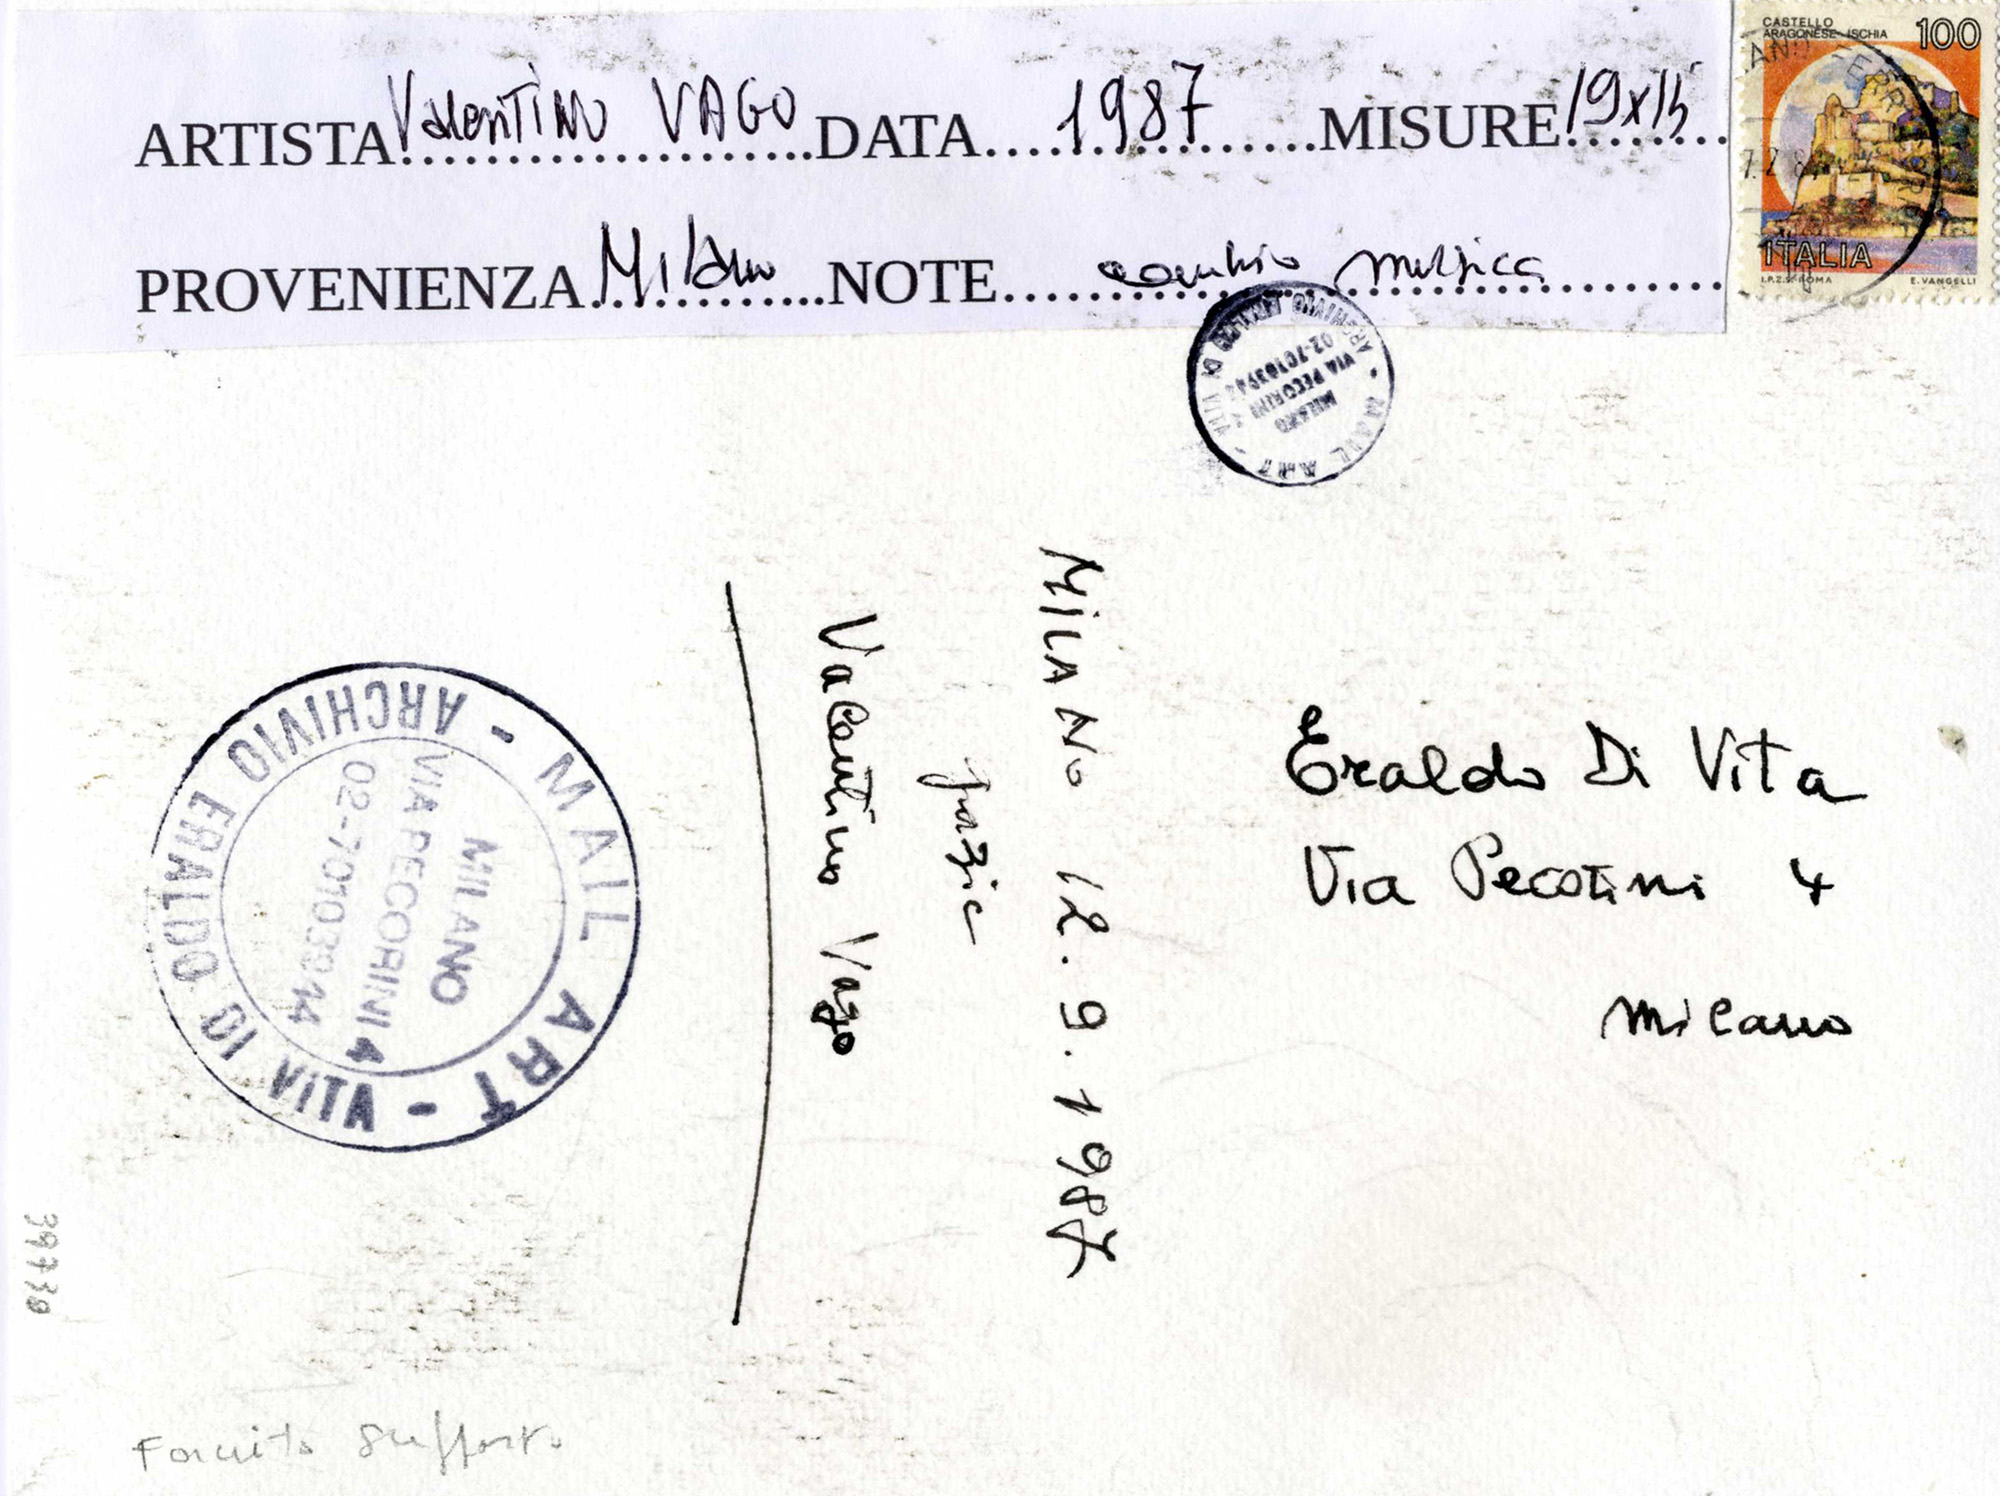 ARTISTA Valentino VAGO DATA 1987 MISURE 19x15
PROVENIENZA Milano NOTE cambio musica
CASTELLO
ARAGONESE-ISCHIA
100
ITALIA
I.P.Z.S. ROMA
E. VANGELLI
MAIL ART - ARCHIVIO ERALDO DI VITA -
02-70103944
VIA PECORINI 4
MILANO
MILANO 12.9.1987
grazie
Valentino Vago
Eraldo Di Vita
Via Pecorini 4
Milano
MAIL ART - ARCHIVIO ERALDO DI VITA -
MILANO
VIA PECORINI 4
02-70103944
Fornito supporto